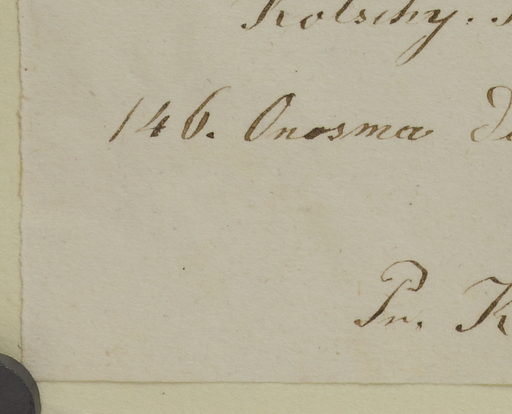 Kotschy.
146. Onosma
Pr. K